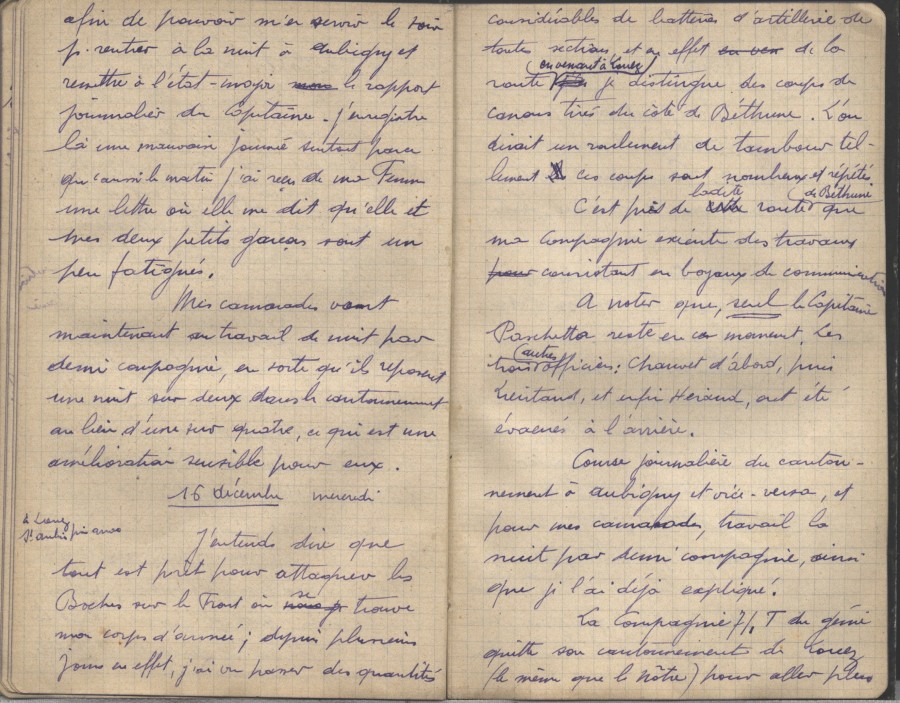 afin de pouvoir m'en servir le soir
p. rentrer à la nuit à Aubigny et
remettre à l'état-major le rapport
journalier du Capitaine. J'enregistre
là une mauvaise journée surtout parce
qu'aussi le matin j'ai reçu de ma Femme
une lettre où elle me dit qu'elle et
mes deux petits garçons sont un
peu fatigués.
Mes camarades vont
maintenant au travail de nuit par
demi compagnie, en sorte qu'ils reposent
une nuit sur deux dans le cantonnement
au lieu d'une sur quatre, ce qui est une
amélioration sensible pour eux.
16 décembre mercredi
à
J'entends dire que
tout est prêt pour attaquer les
Boches sur le Front où se trouve
mon corps d'armée ; depuis plusieurs
jours en effet, j'ai vu passer des quantités
considérables de batteries d'artillerie de
toutes sections, et en effet de la
route (en venant à) je distingue des coups de
canons tirés du côté de Béthune. L'on
dirait un roulement de tambour tel-
lement ces coups sont nombreux et répétés
C'est près de ladite route (de Béthune) que
ma Compagnie exécute des travaux
consistant en boyaux de communication
A noter que, seul le Capitaine
Paschetta reste en ce moment. Les
trois (autres) officiers : Chauvet d'abord, puis
Lieutaud, et enfin Héraud, ont été
évacués à l'arrière.
Course journalière du canton-
nement à Aubigny et vice-versa, et
pour mes camarades, travail la
nuit par demi compagnie, ainsi
que je l'ai déjà expliqué.
La Compagnie 7/1 T du génie
quitte son cantonnement de
(le même que le nôtre) pour aller plus